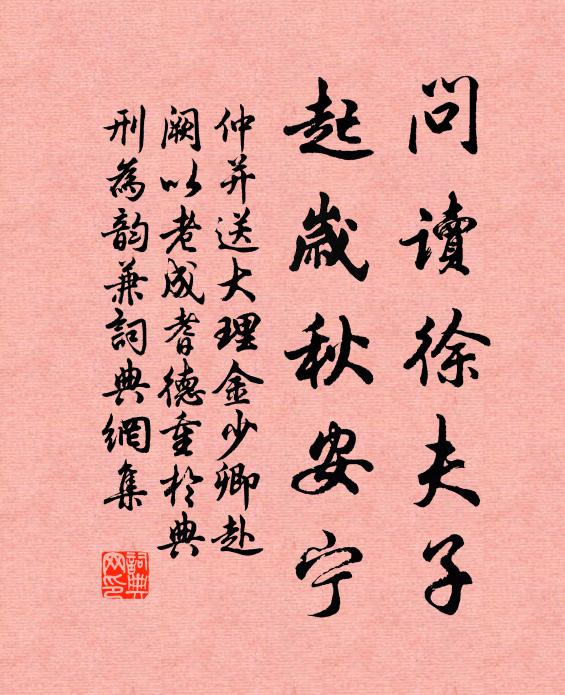 问读徐夫子
起岁秋安宁
仲并送大理金少卿赴
阙以老成耆德重於典
刑為韵兼詞典網集
詞典
网印